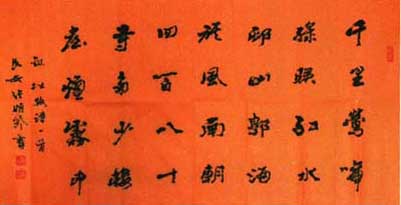 千里鶯啼
綠映红水
邨山郭酒
旗風南朝
四百八十
寺多少樓
臺煙中
杜牧詩一首
長安書